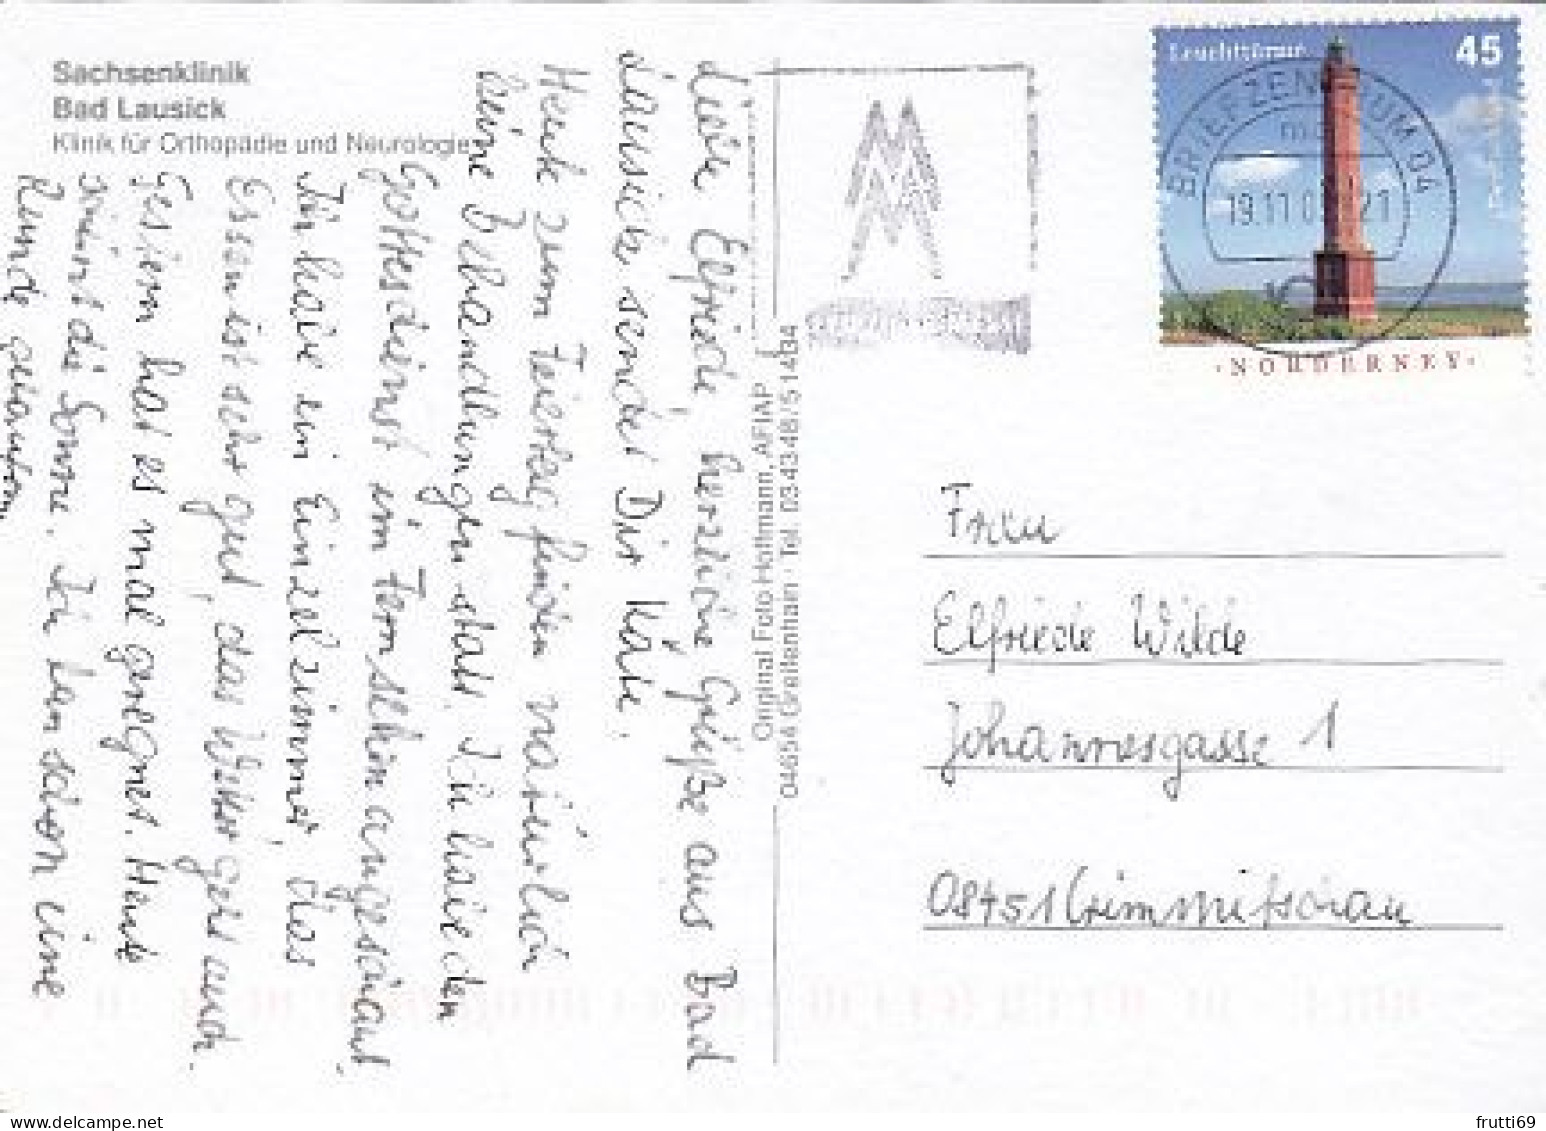 Sachsenklinik
Bad Lausick
Klinik für Orthopädie und Neurologie
Liebe Elfriede, herzliche Grüße aus Bad
Lausick sendet Dir Käte.
Heute zum Feiertag finden natürlich
keine Behandlungen statt. Ich habe den
Gottesdienst im Fernsehen angeschaut.
Ich habe ein Einzelzimmer, das
Essen ist sehr gut, das Wetter geht auch.
Gestern hat es mal geregnet. Heute
scheint die Sonne. Ich bin schon eine
Runde gelaufen.
Original Foto Hoffmann, AFIAP
04654 Greifenhain · Tel. 03 43 48 / 5 14 84
Leuchttürme
45
NORDERNEY
BRIEFZENTRUM 04
19.11.0 21
Frau
Elfriede Wilde
Johannesgasse 1
08451 Crimmitschau
frutti69